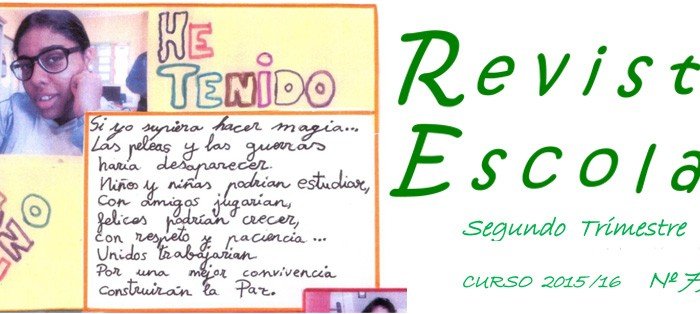 HE
TENIDO
Si yo supiera hacer magia...
Las peleas y las guerras
haría desaparecer.
Niños y niñas podrían estudiar,
con amigos jugarían,
felices podrían crecer,
con respeto y paciencia ...
Unidos trabajarían
Por una mejor convivencia
construirán la Paz.
Revist
Escola
Segundo Trimestre
CURSO 2015/16 Nº 7